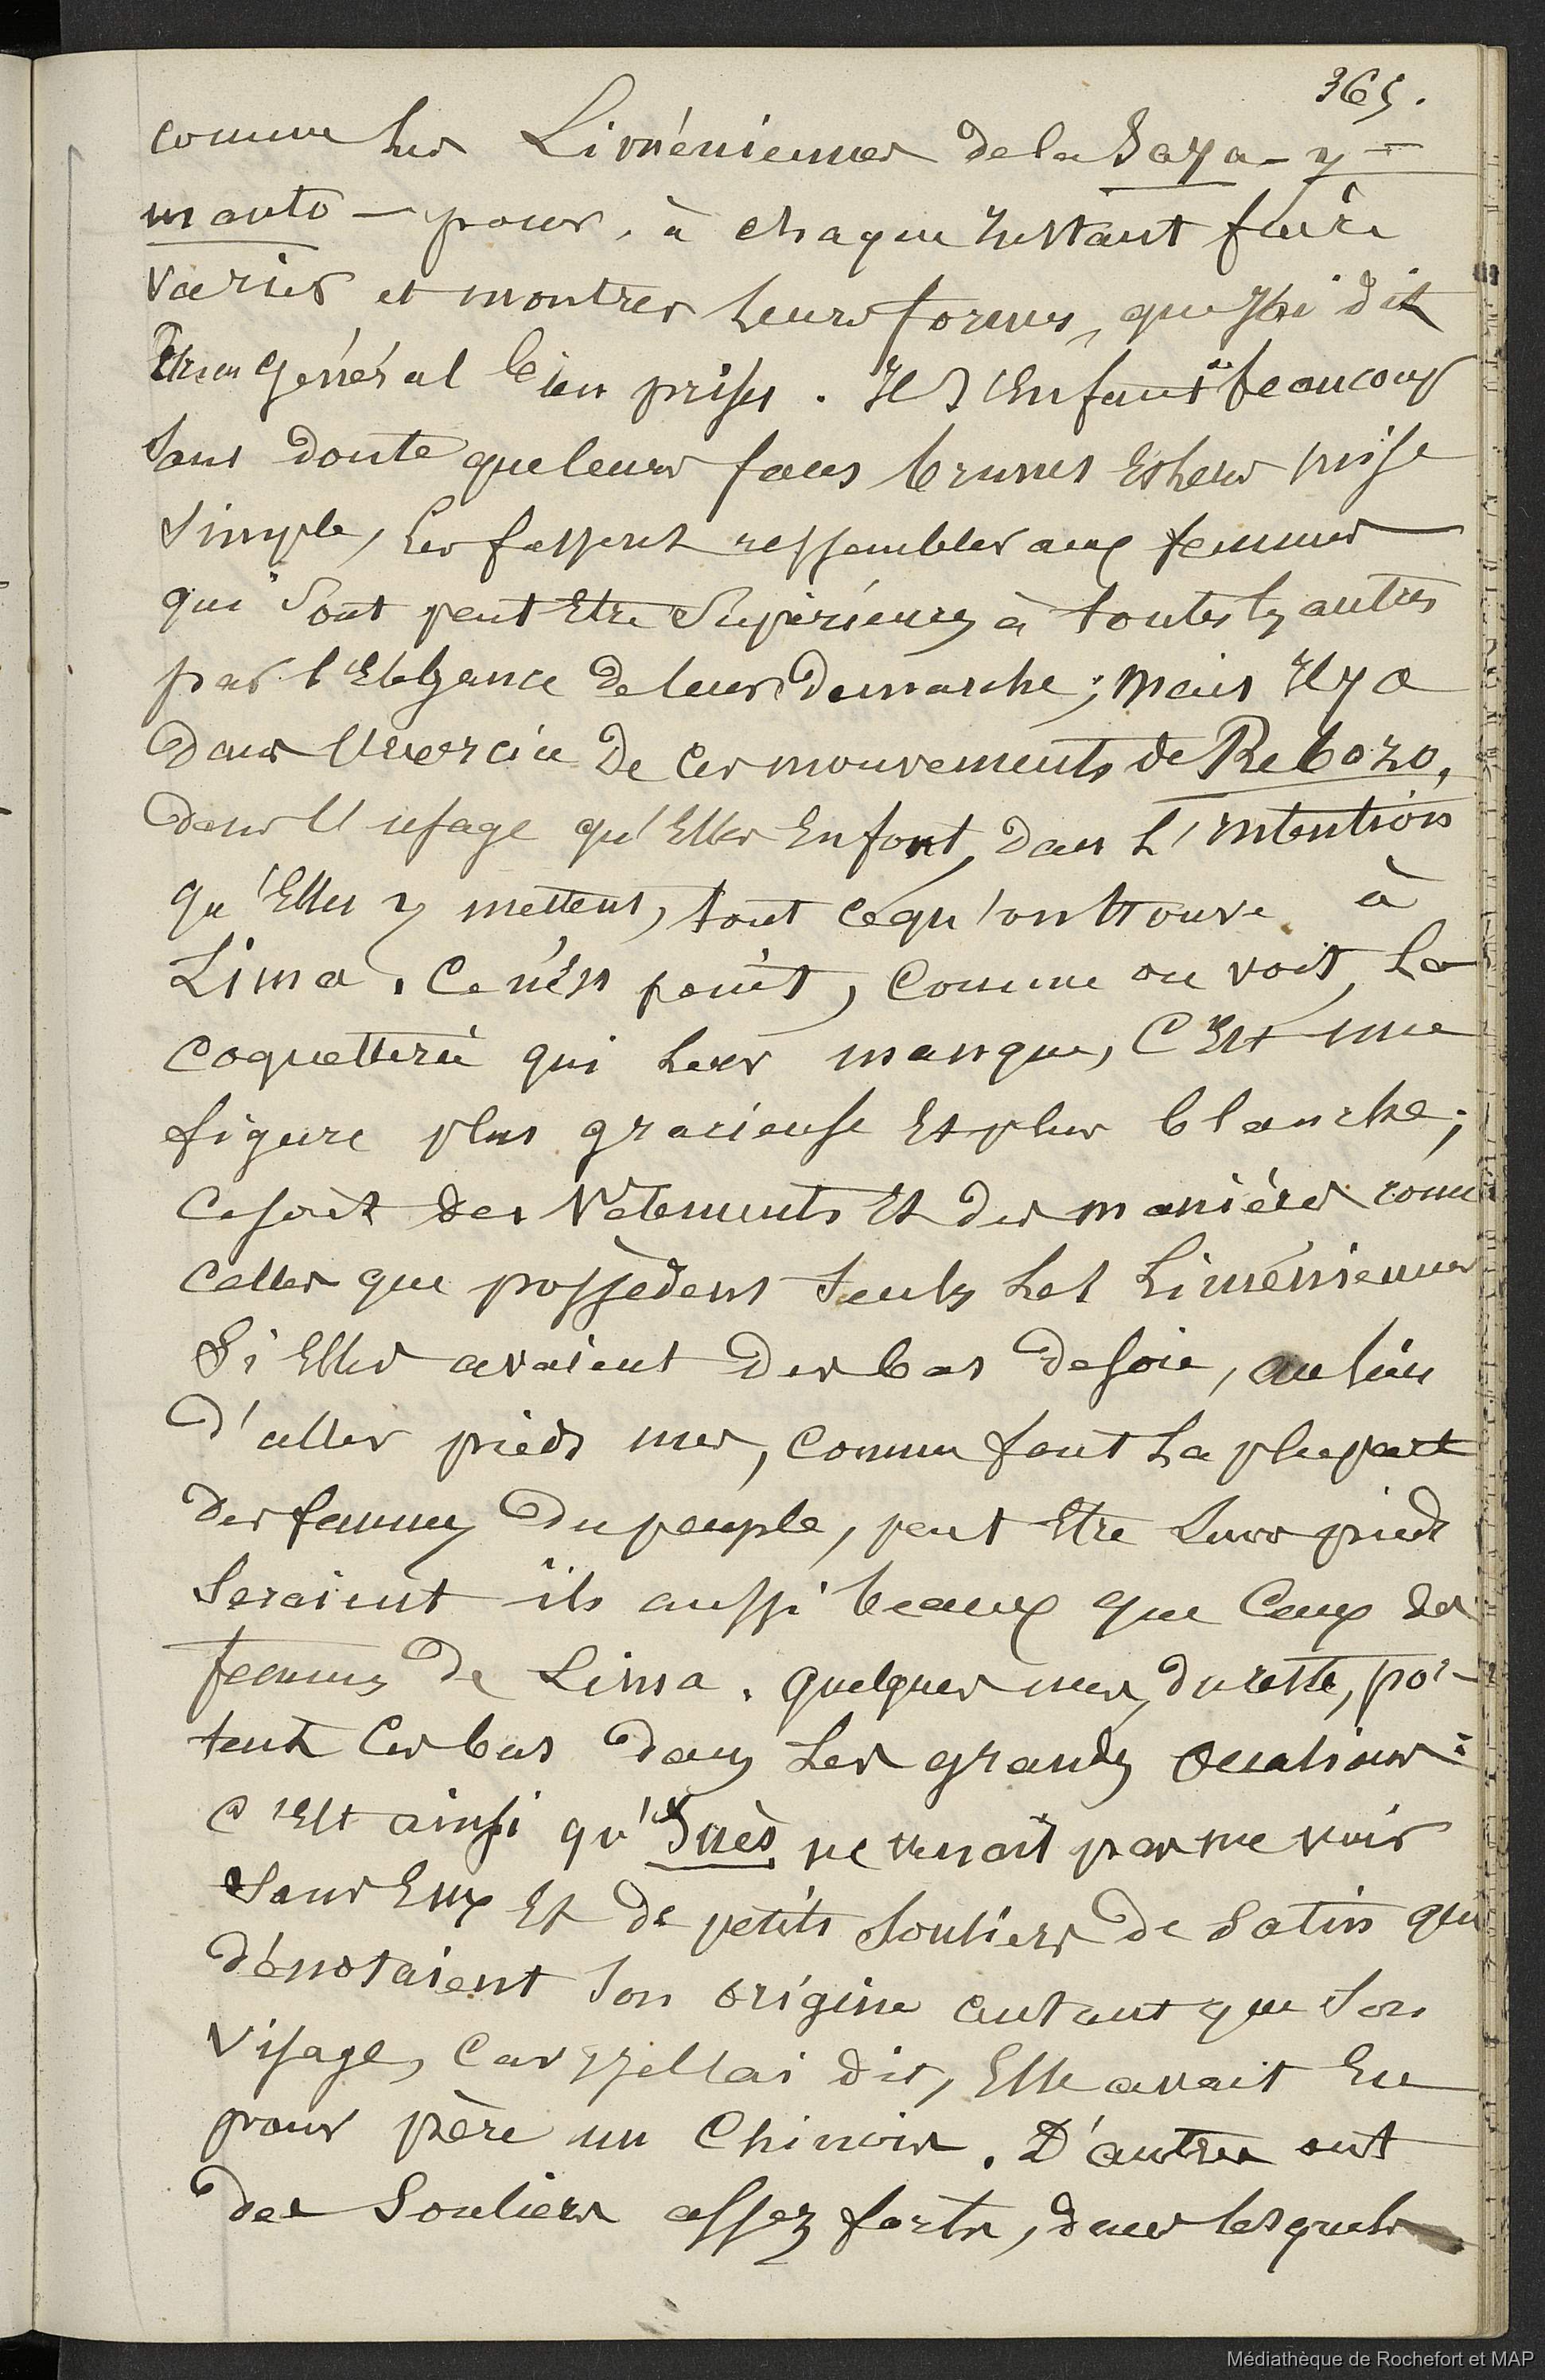 365.
comme les Liméniennes de la Saya-y-
manto - pour, à chaque Instant faire
varier et montrer leurs formes, que J'ai dit
Etre en général bien prises. Il S'En faut beaucoup
sans doute que leurs faces brunes Et leur mise
simple, les fassent ressembler aux femmes
qui sont peut Etre Supérieures à toutes les autres
par l'Elégance de leur Démarche; mais Il y a
Dans l'Exercice De Ces mouvements de Rebozo,
dans l'usage qu'Elles En font, Dans l'Intention
qu'Elles y mettent, tout ce qu'on trouve à
Lima. Ce n'Est point, Comme on voit, la
Coquetterie qui leur manque, C'Est une
figure plus gracieuse Et plus blanche;
Ce sont des Vêtements Et des manières comme
Celles que possèdent seules les Liméniennes
Si Elles avaient Des bas De soie, au lieu
D'aller pieds nus, Comme font la plupart
Des femmes Du peuple, peut Etre leurs pieds
Seraient ils aussi beaux que Ceux des
femmes De Lima. quelques unes, du reste, por-
tent Ces bas Dans les grandes occasions:
C'Est ainsi qu'Inès ne venait pas me voir
Sans Eux Et de petits souliers De Satin qui
Dénotaient son origine autant que son
Visage, Car Je l'ai dit, Elle avait Eu
pour père un Chinois. D'autres ont
des Souliers assez forts, dans lesquels
Médiathèque de Rochefort et MAP